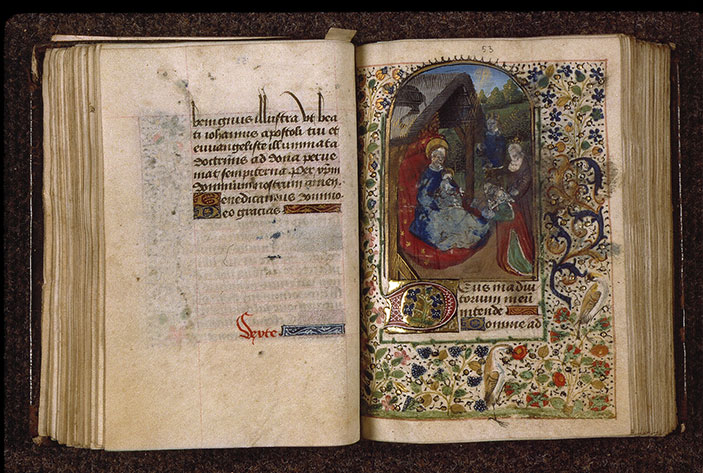 benignus illustra vt bea
ti iohannis apostoli tui et
euuangeliste illuminata
doctrinis ad dona perue
mat sempiterna per xpm
dominum nostrum amen.
Benedicamus domino
deo gracias
Sexte
53
Deus in adiu
torium meum
intende
Domine ad